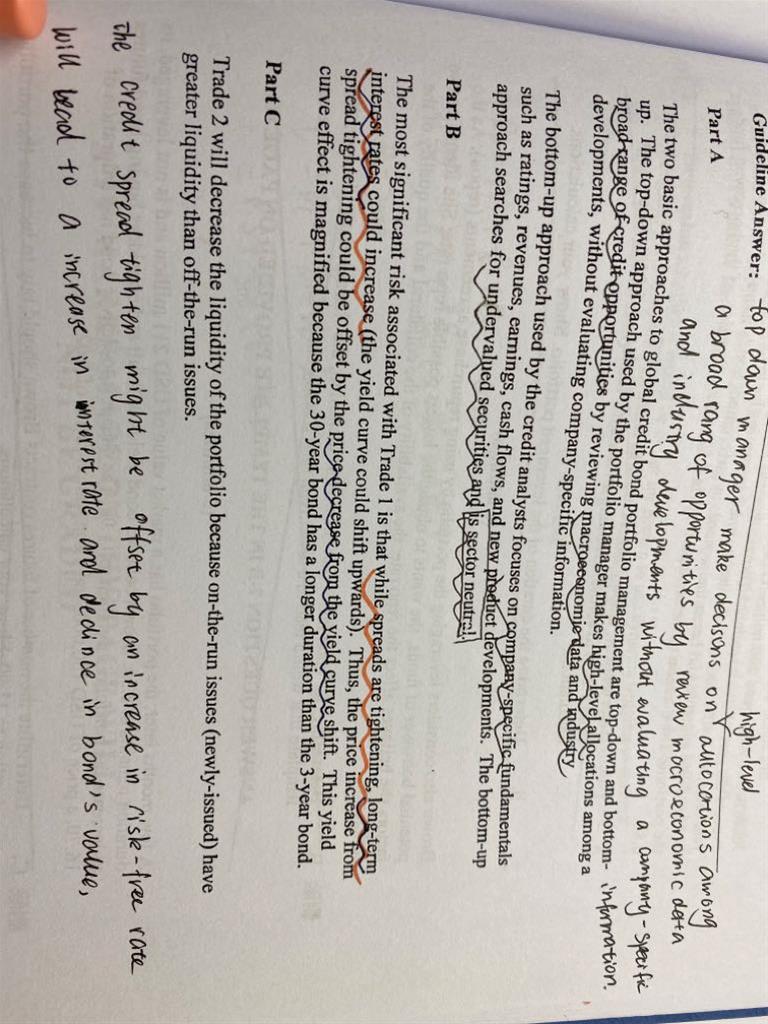 Guideline Answer: top down manager make decisons on high-level autocortions among
a broad rang of opportunities by review macroeconomic data
and industry developments without evaluating a company-specific
information.
Part A
The two basic approaches to global credit bond portfolio management are top-down and bottom-
up. The top-down approach used by the portfolio manager makes high-level allocations among a
broad range of credit opportunities by reviewing macroeconomic data and industry
developments, without evaluating company-specific information.
The bottom-up approach used by the credit analysts focuses on company-specific fundamentals
such as ratings, revenues, earnings, cash flows, and new product developments. The bottom-up
approach searches for undervalued securities and is sector neutral.
Part B
The most significant risk associated with Trade 1 is that while spreads are tightening, long-term
interest rates could increase (the yield curve could shift upwards). Thus, the price increase from
spread tightening could be offset by the price decrease from the yield curve shift. This yield
curve effect is magnified because the 30-year bond has a longer duration than the 3-year bond.
Part C
Trade 2 will decrease the liquidity of the portfolio because on-the-run issues (newly-issued) have
greater liquidity than off-the-run issues.
the credit spread tighten might be offset by an increase in risk-free rate
will lead to a increase in interest rate and declince in bond's value,